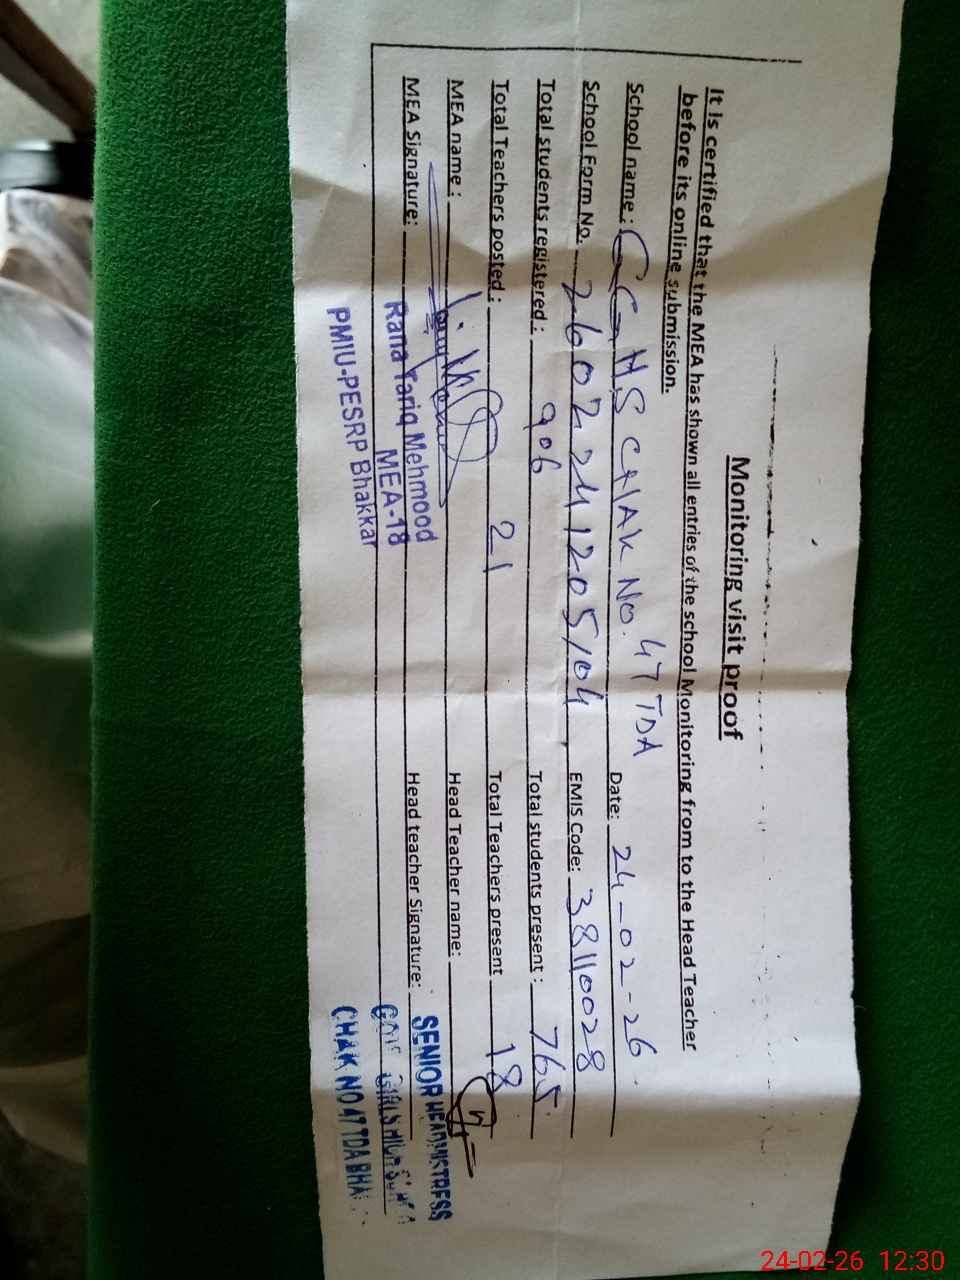 Monitoring visit proof
It is certified that the MEA has shown all entries of the school Monitoring from to the Head Teacher
before its online submission.
School name : GGHS CHAK NO. 47 TDA Date: 24-02-26
School Form No. 2602241205104 EMIS Code: 38110028
Total students registered : 906 Total students present : 765
Total Teachers posted : 21 Total Teachers present 18
MEA name : Head Teacher name:
MEA Signature: Head teacher Signature:
Rana Tariq Mehmood
MEA-18
PMIU-PESRP Bhakkar
SENIOR HEADMISTRESS
GIRLS HIGH
CHAK NO 47 TDA
24-02-26 12:30